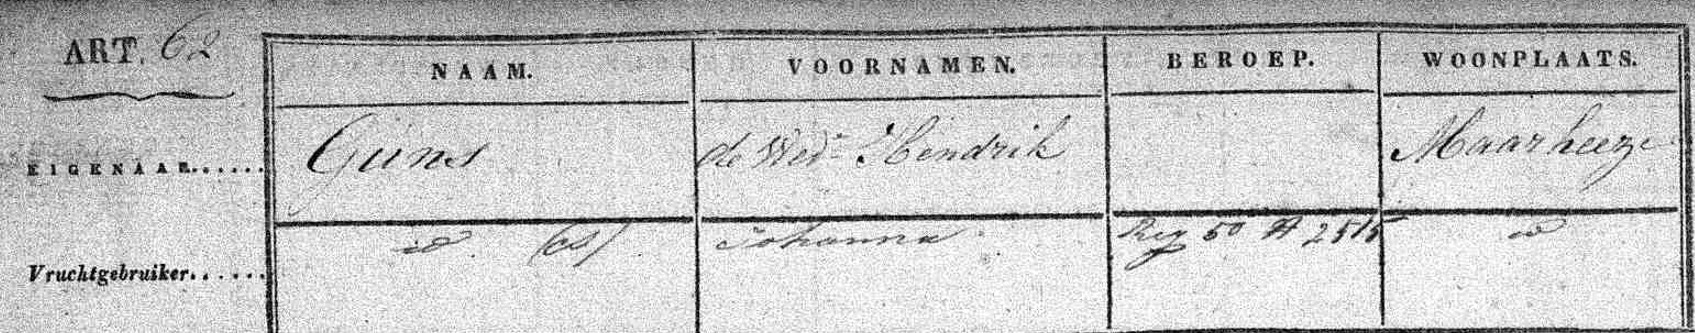 ART. 62
NAAM. VOORNAMEN. BEROEP. WOONPLAATS.
EIGENAAR...... Guns de Wed. Hendrik Maarheeze
id (cs) Johanna Reg 50 A 2515 id
Vruchtgebruiker......